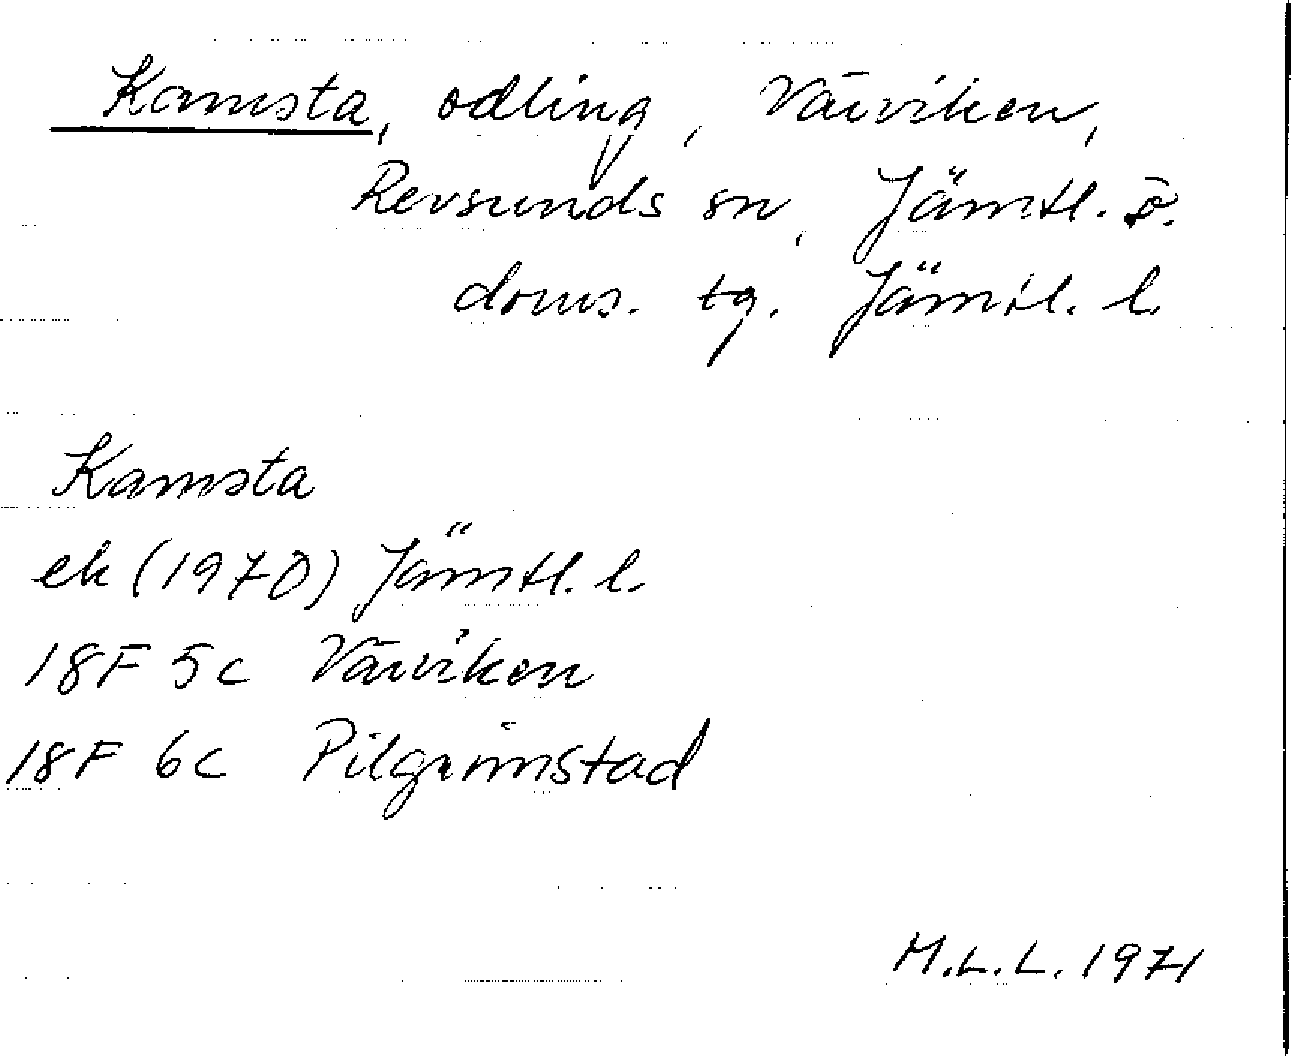 Kamsta, odling, Väviken,
Revsunds sn, Jämtl. ö.
doms. tg. Jämtl. l.
Kamsta
ek (1970) Jämtl. l.
18F 5c Väviken
18F 6c Pilgrimstad
M.L.L. 1971